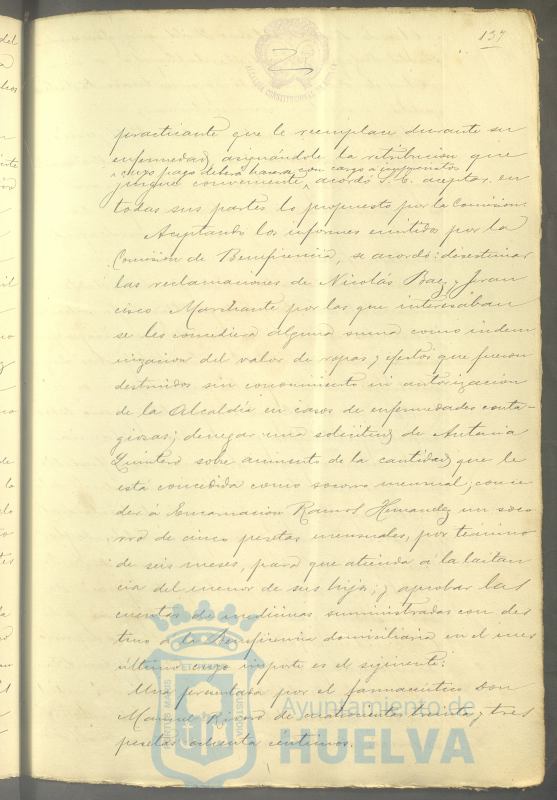 137
ALCALDIA CONSTITUCIONAL DE HUELVA
practicante que le reemplace durante su
enfermedad, asignándole la retribucion que
cuyo pago deberá hacerse con cargo a imprevistos
juzgue conveniente, acordó S. E. aceptar en
todas sus partes lo propuesto por la Comision.
Aceptando los informes emitidos por la
Comision de Beneficencia, se acordó: desestimar
las reclamaciones de Nicolás Baez y Fran
cisco Marchante por las que interesaban
se les concediera alguna suma como indem
nizacion del valor de ropas y efectos que fueron
destruidos sin conocimiento ni autorizacion
de la Alcaldía en casos de enfermedades conta-
giosas; denegar una solicitud de Antonia
Quintero sobre aumento de la cantidad que le
está concedida como socorro mensual; conce
der á Encarnacion Ramos Hernandez un soco
rro de cinco pesetas mensuales, por término
de seis meses, para que atienda á la lactan
cia del menor de sus hijos; y aprobar las
cuentas de medicinas suministradas con des
tino á la beneficencia domiciliaria en el mes
último cuyo importe es el siguiente:
Una presentada por el farmacéutico Don
Manuel Rivero de cuatrocientas treinta y tres
pesetas ochenta centimos.
Ayuntamiento de
HUELVA